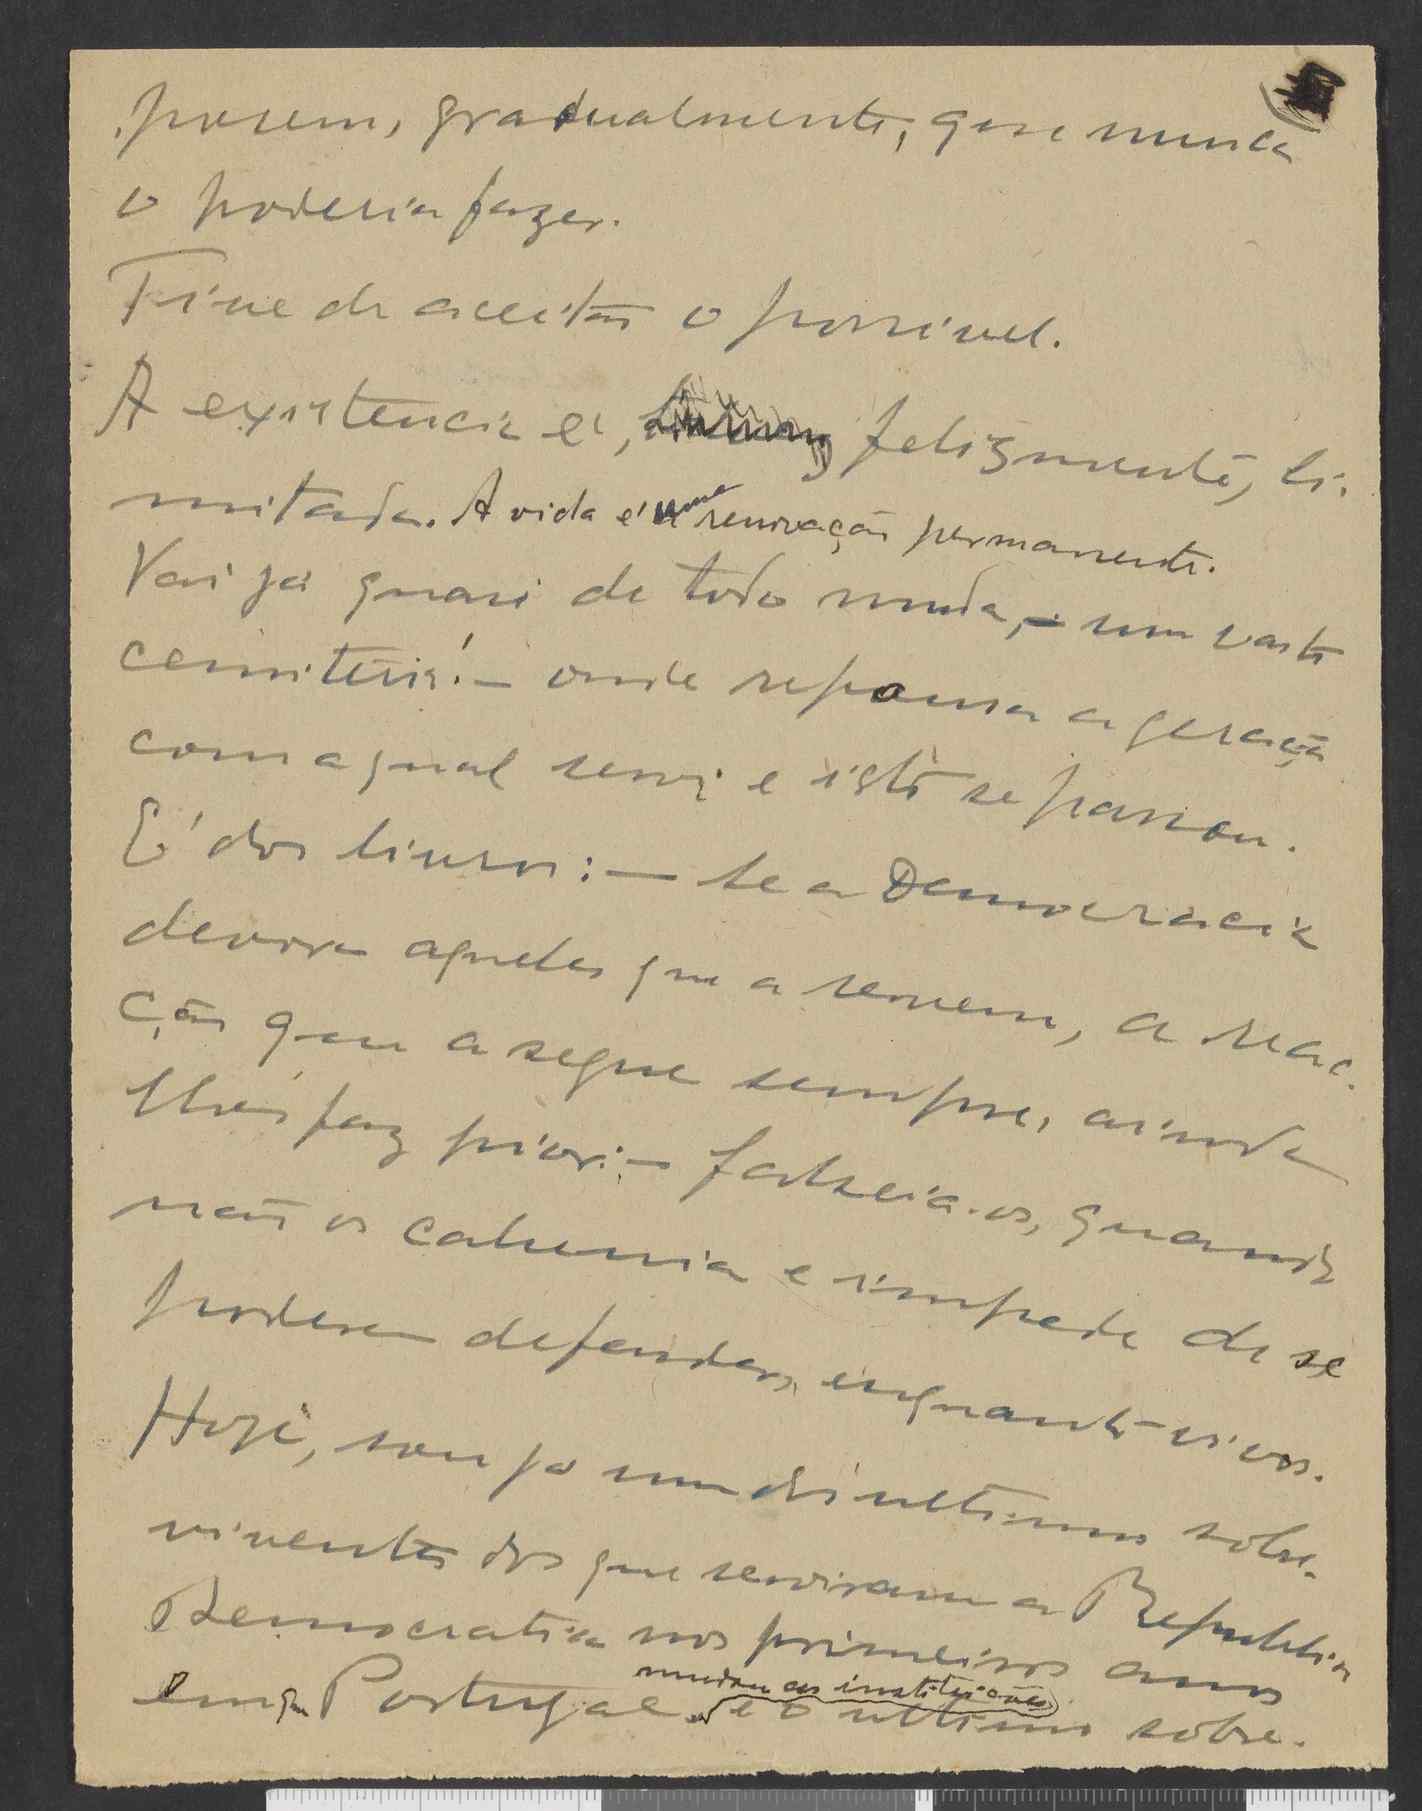 porem, gradualmente, que nunca
o poderia fazer.
Tive de aceitar o possivel.
A existencia é, felizmente, li-
mitada. A vida é uma renovação permanente.
Vai já quasi de todo muda, – um vasto
cemiterio! – onde repousa a geração
com a qual servi e isto se passou.
É dos livros: – se a Democracia
devora aqueles que a servem, a reac-
ção que a segue sempre, ainda
lhes faz pior: – falseia-os, quando
não os calunia e impede de se
poderem defender, enquanto vivos.
Hoje, sou já um dos ultimos sobre-
viventes dos que serviram a Republica
Democratica nos primeiros anos
mudou as instituições
em que Portugal e o ultimo sobre-